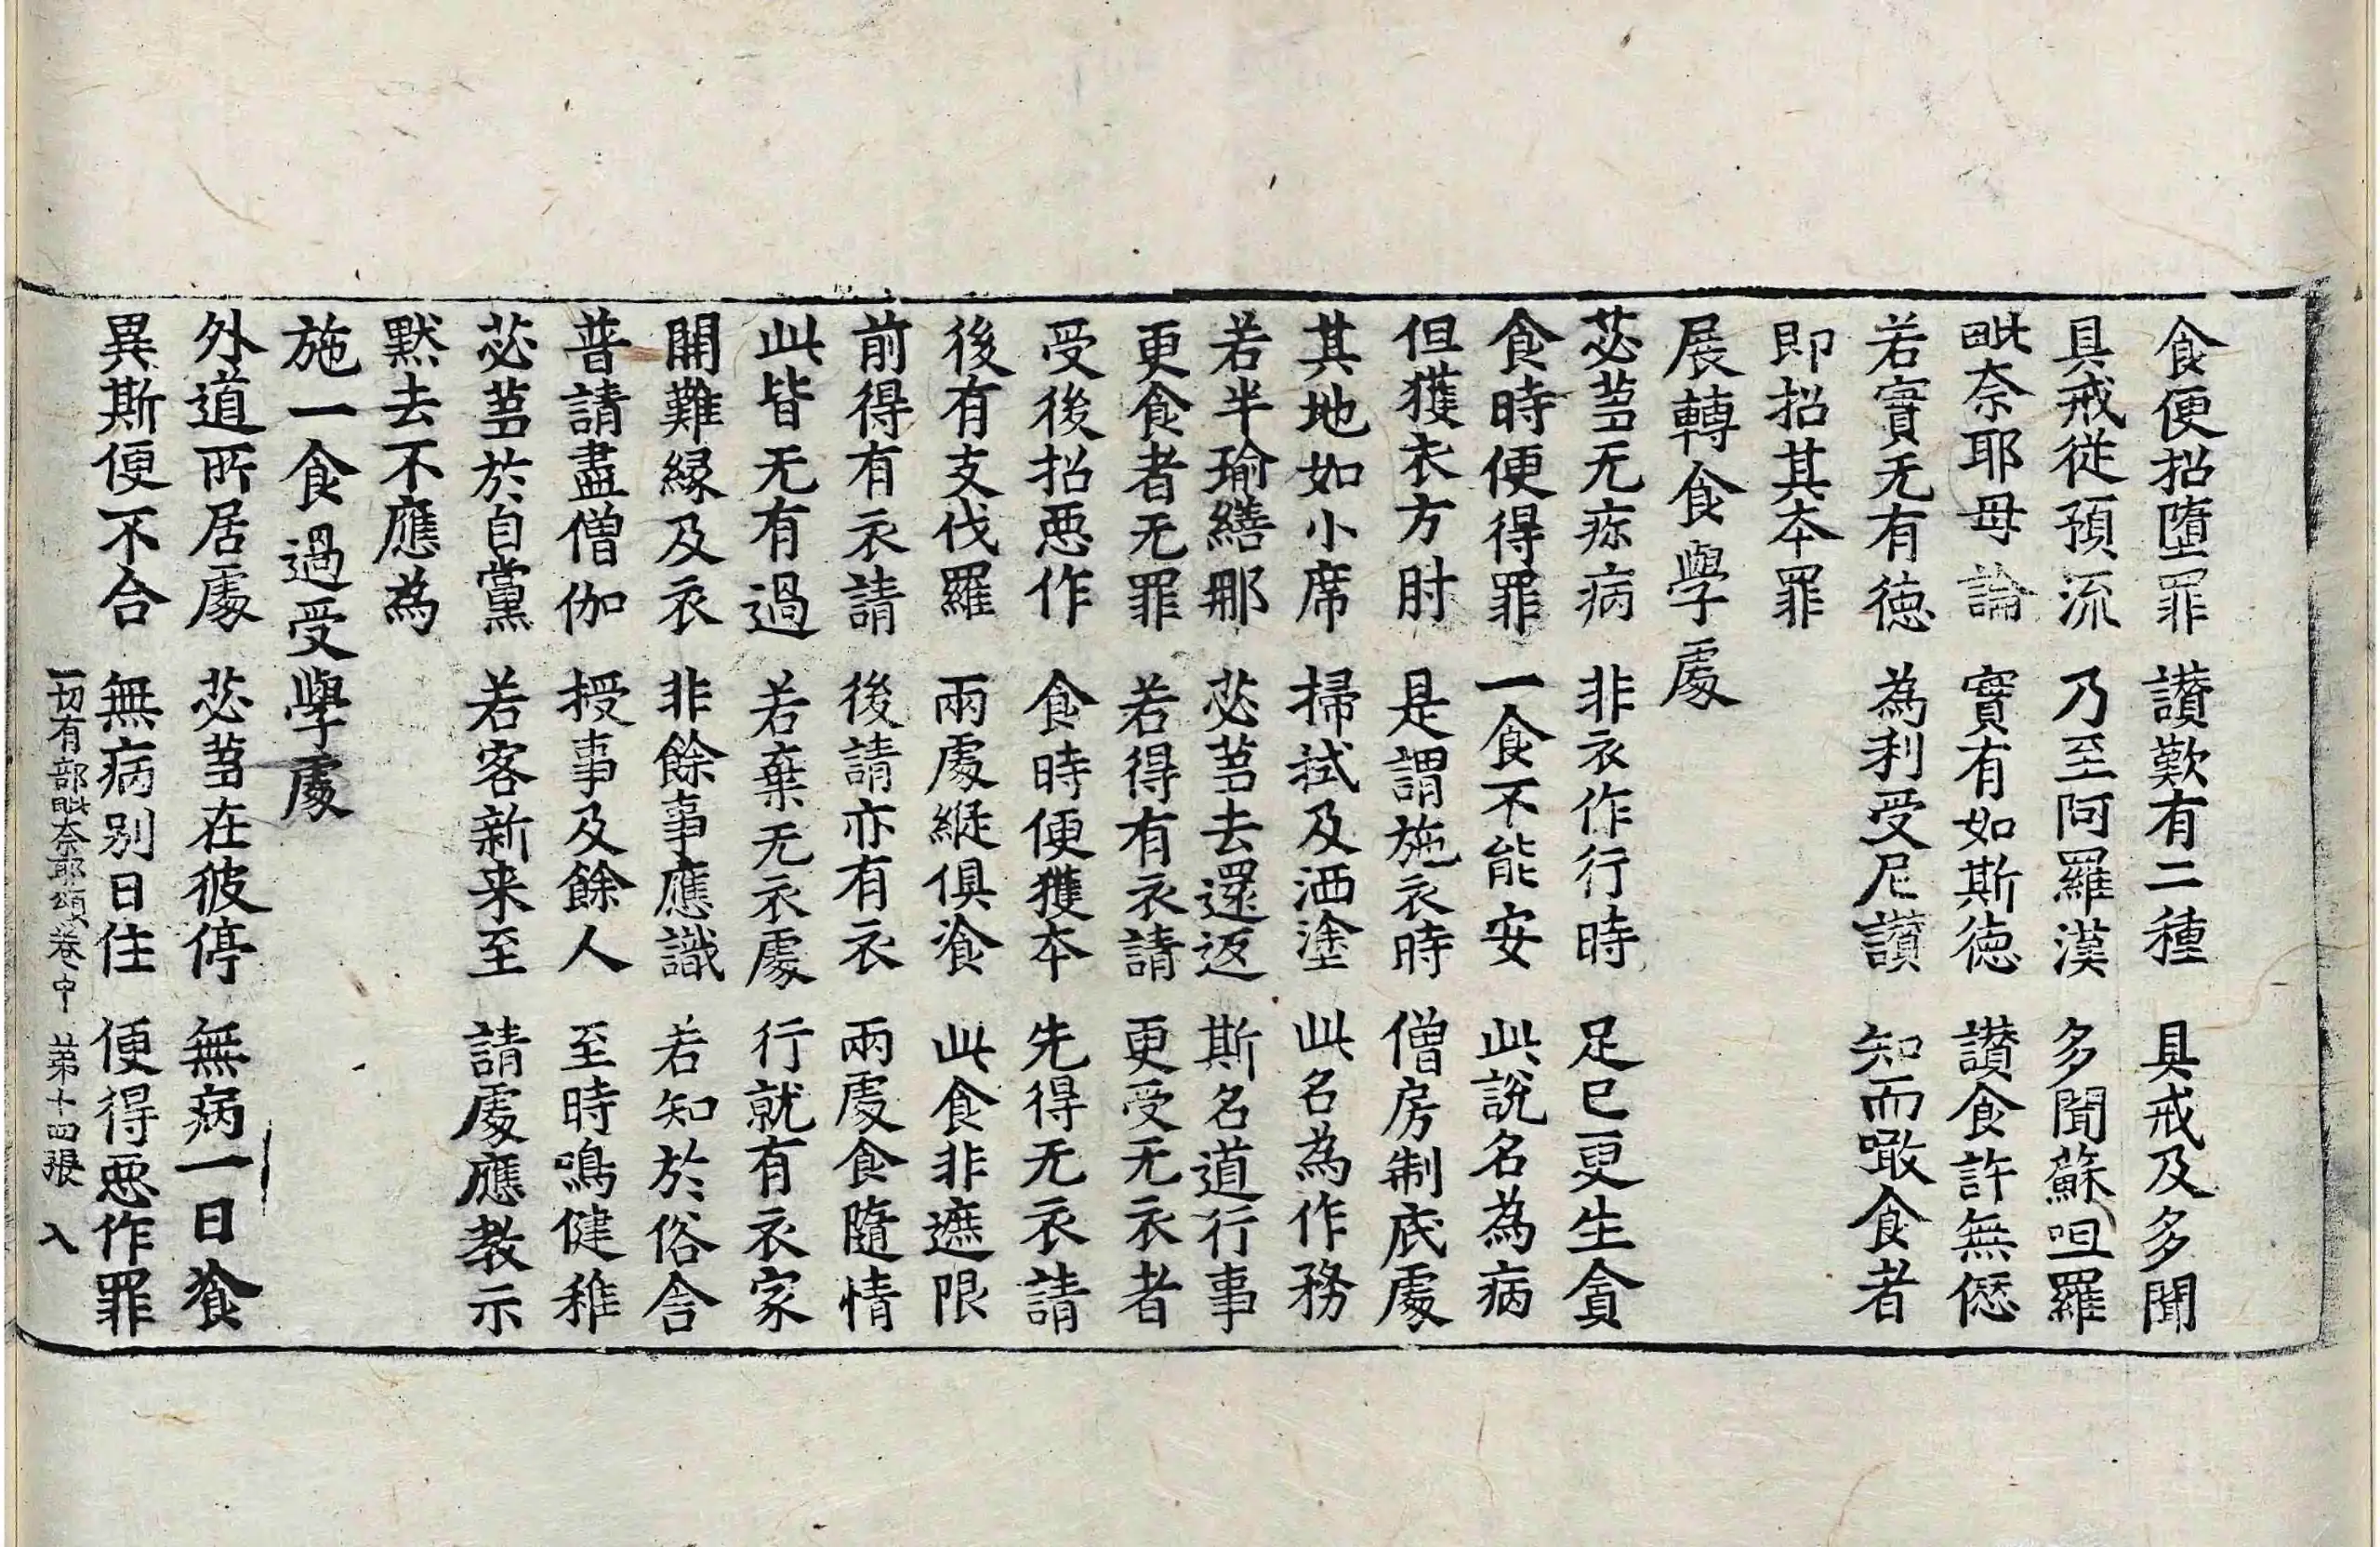 食便招墮罪 讃歎有二種 具戒及多聞
具戒從預流 乃至阿羅漢 多聞蘇呾羅
毗奈耶毋論 實有如斯德 讃食許無愆
若實无有德 為利受尼讃 知而噉食者
即招其本罪
展轉食學處
苾蒭无疹病 非衣作行時 足已更生貪
食時便得罪 一食不能安 此說名為病
但獲衣方肘 是謂施衣時 僧房制底處
其地如小席 掃拭及洒塗 此名為作務
若半瑜繕那 苾蒭去還返 斯名道行事
更食者无罪 若得有衣請 更受无衣者
受後招惡作 食時便獲本 先得无衣請
後有支伐羅 兩處縱俱飡 此食非遮限
前得有衣請 後請亦有衣 兩處食隨情
此皆无有過 若棄无衣處 行就有衣家
開難緣及衣 非餘事應識 若知於俗舍
普請盡僧伽 授事及餘人 至時鳴健稚
苾蒭於自黨 若客新来至 請處應教示
黙去不應為
施一食過受學處
外道所居處 苾蒭在彼停 無病一日飡
異斯便不合 無病別日住 便得惡作罪
一切有部毗奈耶頌卷中 第十四張 入